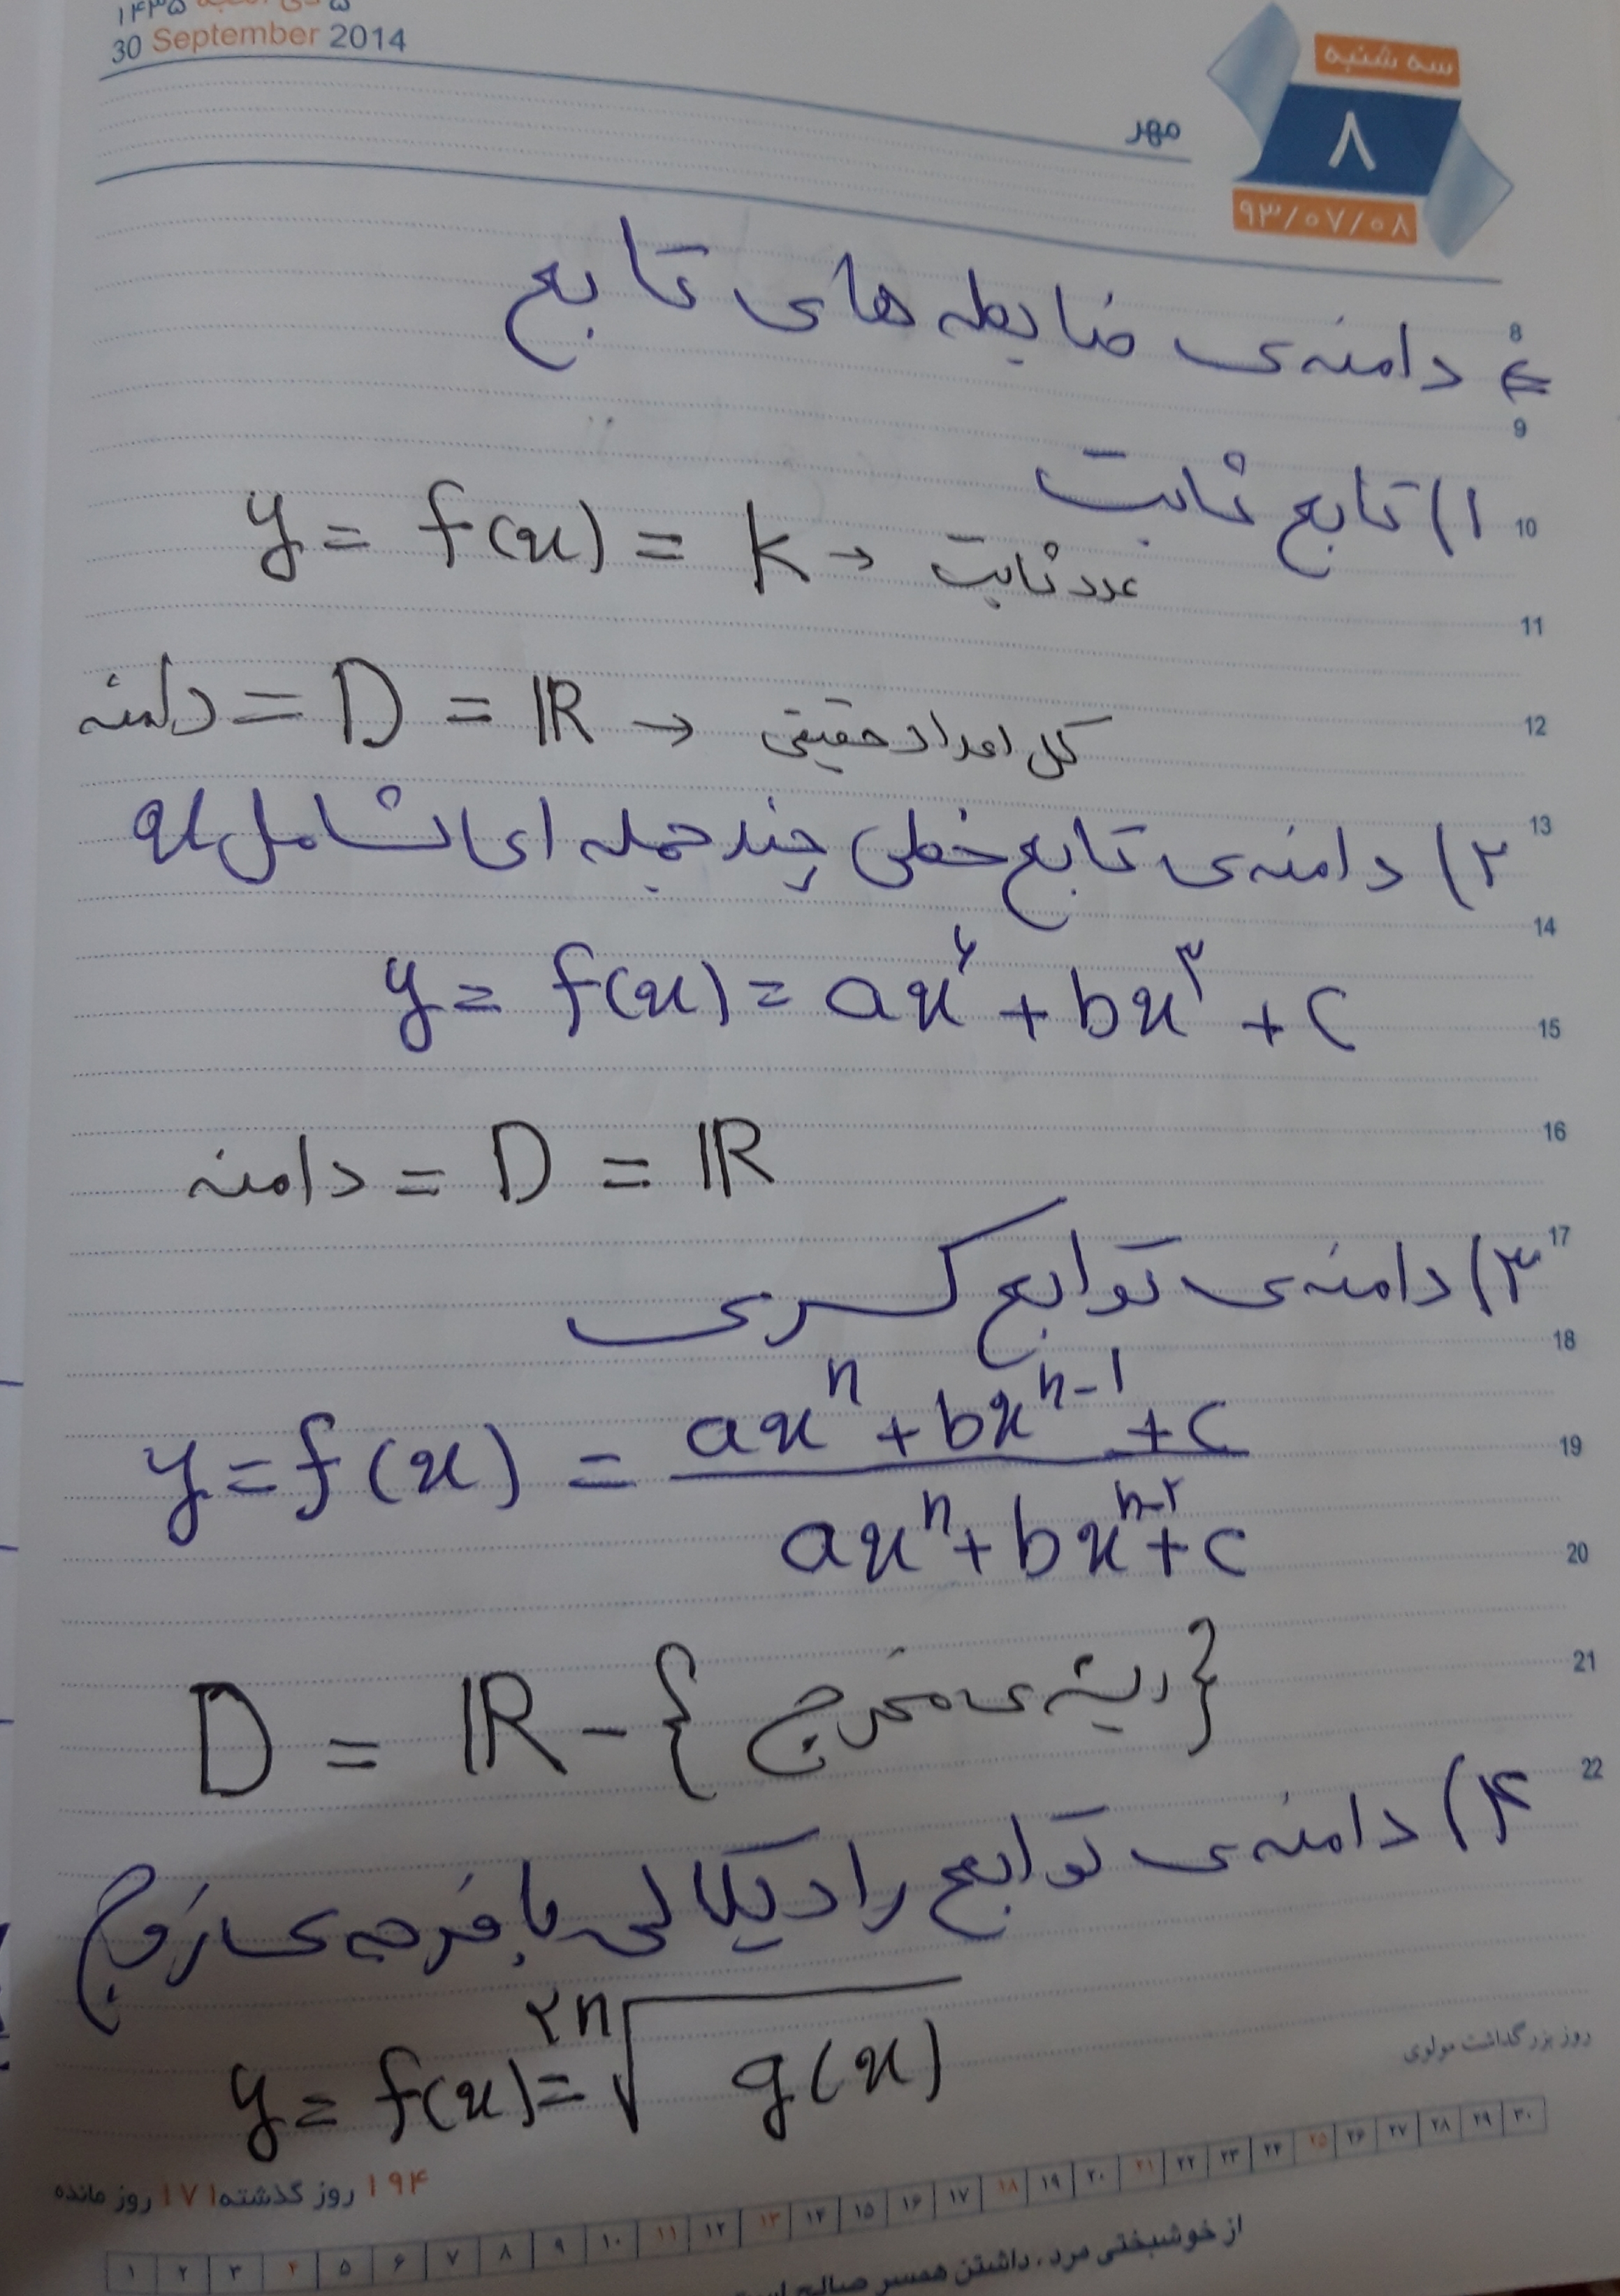 ۱۴۳۵
30 September 2014
سه شنبه
۸
مهر
۹۳/۰۷/۰۸
دامنه‌ی ضابطه های تابع
۱) تابع ثابت
y = f(x) = k → عدد ثابت
دامنه = D = ℝ → کل اعداد حقیقی
۲) دامنه‌ی تابع خطی چند جمله ای شامل x
y = f(x) = ax⁴ + bx³ + c
دامنه = D = ℝ
۳) دامنه‌ی توابع کسری
y = f(x) = (axⁿ + bxⁿ⁻¹ + c) / (axⁿ + bxⁿ⁻² + c)
D = ℝ - {ریشه‌ی مخرج}
۴) دامنه‌ی توابع رادیکالی با فرجه‌ی زوج
y = f(x) = ²ⁿ√g(x)
8
9
10
11
12
13
14
15
16
17
18
19
20
21
22
روز بزرگداشت مولوی
۱۹۴ روز گذشته ۱۷۱ روز مانده
۱ ۲ ۳ ۴ ۵ ۶ ۷ ۸ ۹ ۱۰ ۱۱ ۱۲ ۱۳ ۱۴ ۱۵ ۱۶ ۱۷ ۱۸ ۱۹ ۲۰ ۲۱ ۲۲ ۲۳ ۲۴ ۲۵ ۲۶ ۲۷ ۲۸ ۲۹ ۳۰
از خوشبختی مرد، داشتن همسر صالح